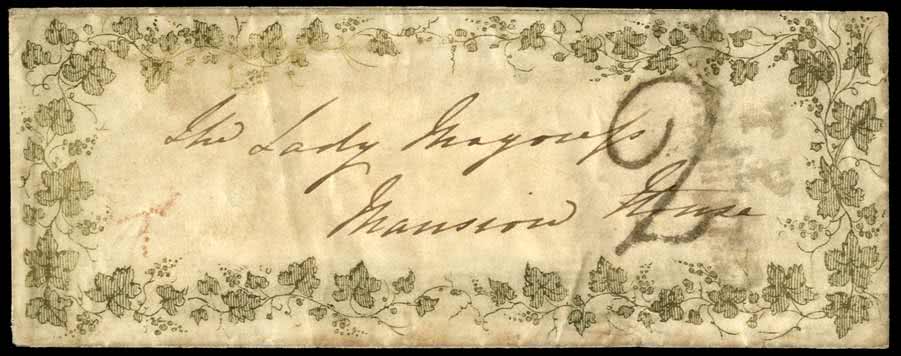 The Lady Mayoress
Mansion House
2